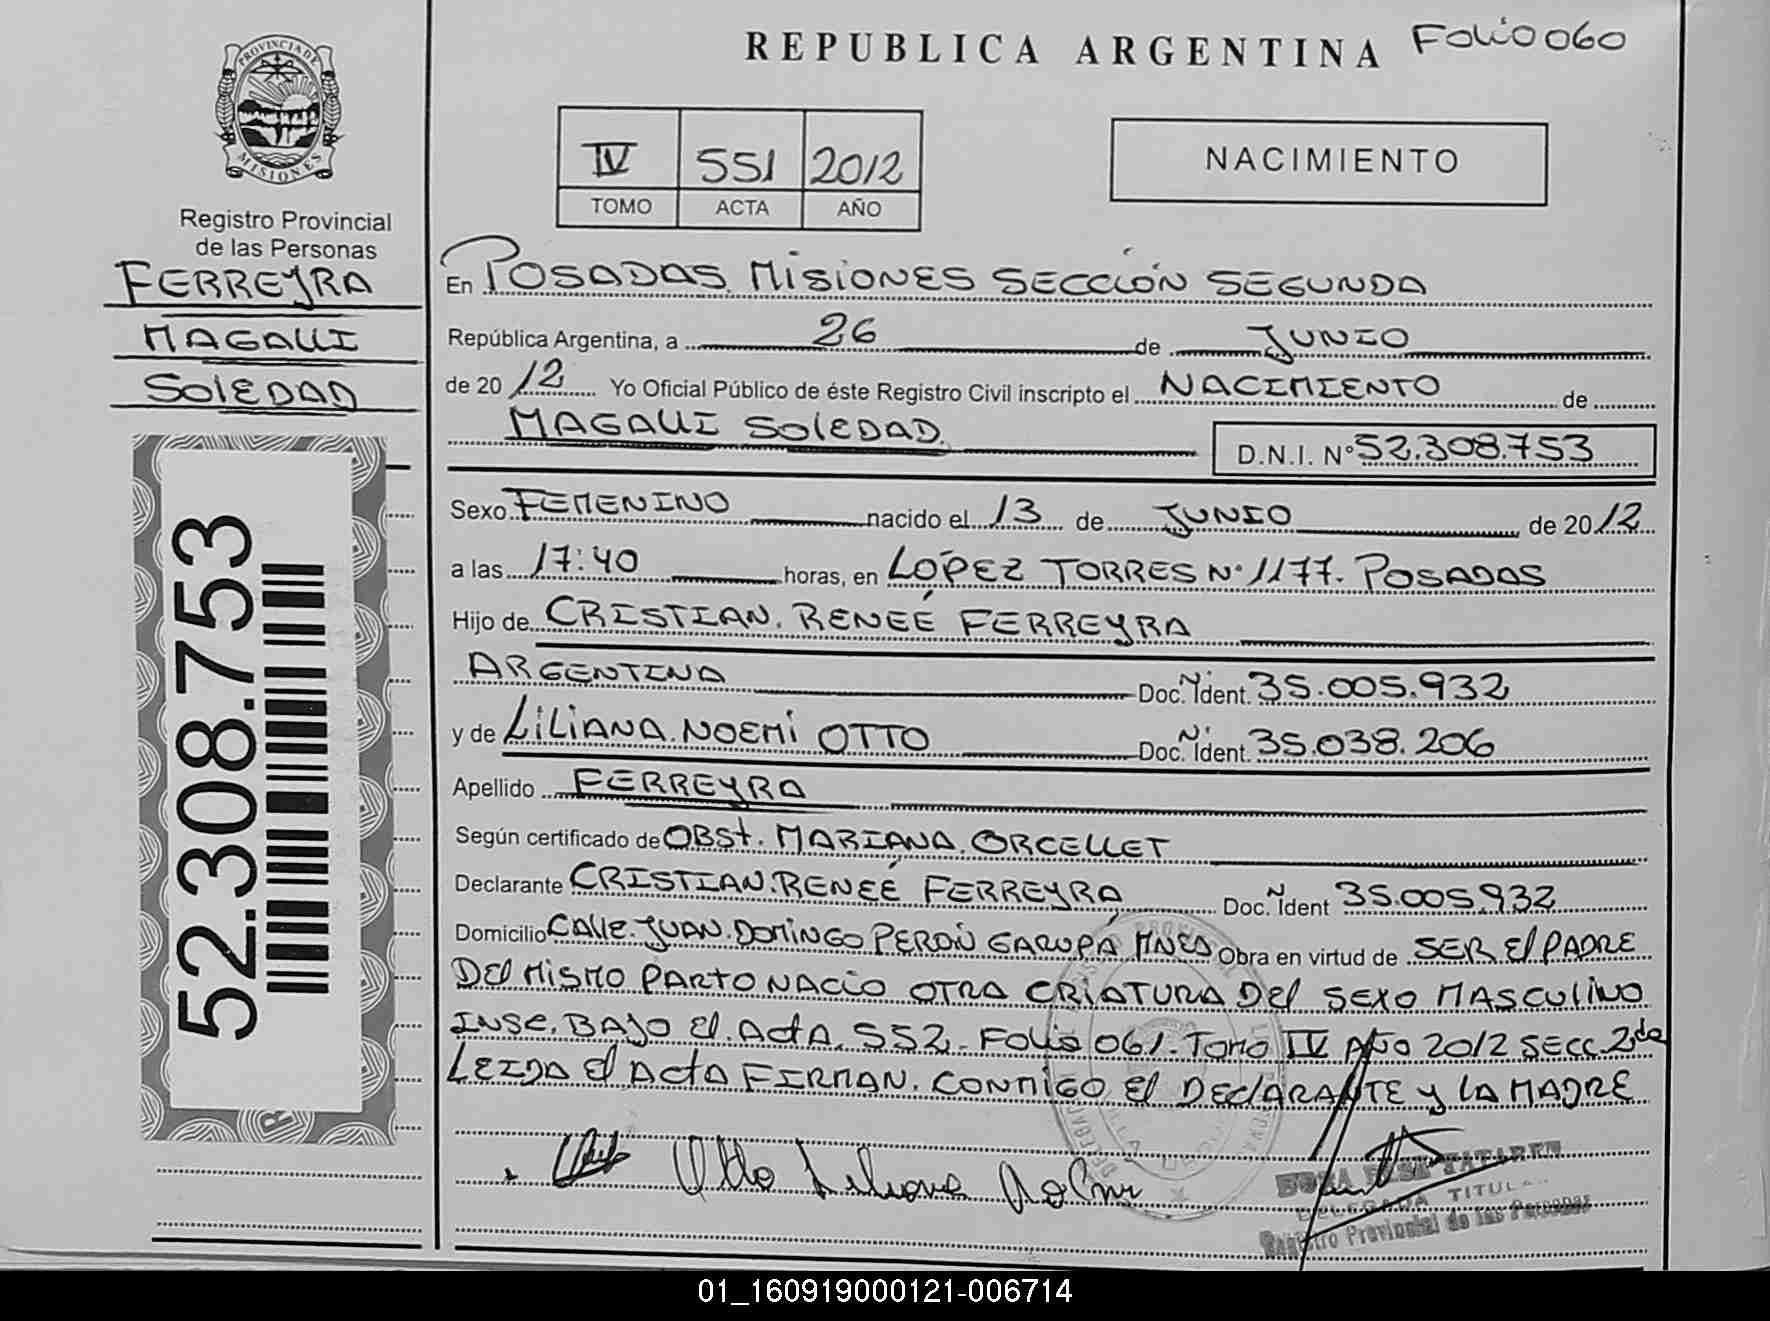 REPUBLICA ARGENTINA
Folio 060
PROVINCIA DE MISIONES
Registro Provincial
de las Personas
FERREYRA
MAGALI
SOLEDAD
52.308.753
IV 551 2012
TOMO ACTA AÑO
NACIMIENTO
En POSADAS. MISIONES SECCIÓN SEGUNDA
República Argentina, a 26 de JUNIO
de 2012 Yo Oficial Público de éste Registro Civil inscripto el NACIMIENTO de
MAGALI SOLEDAD. D.N.I. N° 52.308.753
Sexo FEMENINO nacido el 13 de JUNIO de 2012
a las 17:40 horas, en LÓPEZ TORRES N° 1177. POSADAS
Hijo de CRISTIAN. RENEÉ FERREYRA
ARGENTINA Doc. Ident. N 35.005.932
y de LILIANA. NOEMI OTTO Doc. Ident. N 35.038.206
Apellido FERREYRA
Según certificado de OBST. MARIANA. ORCELLET
Declarante CRISTIAN. RENEÉ FERREYRA Doc. Ident N 35.005.932
Domicilio CALLE. JUAN. DOMINGO PERÓN GARUPÁ MNES Obra en virtud de SER El PADRE
DEL MISMO PARTO NACIO OTRA CRIATURA DEL SEXO MASCULINO
INSC. BAJO El. ACTA. 552. FOLIO 061. TOMO IV AÑO 2012 SECC. 2da
LEIDA El ACTA FIRMAN. CONMIGO El DECLARANTE y LA MADRE
Otto Liliana Noemi
DELEGADA TITULAR
Registro Provincial de las Personas
01_160919000121-006714